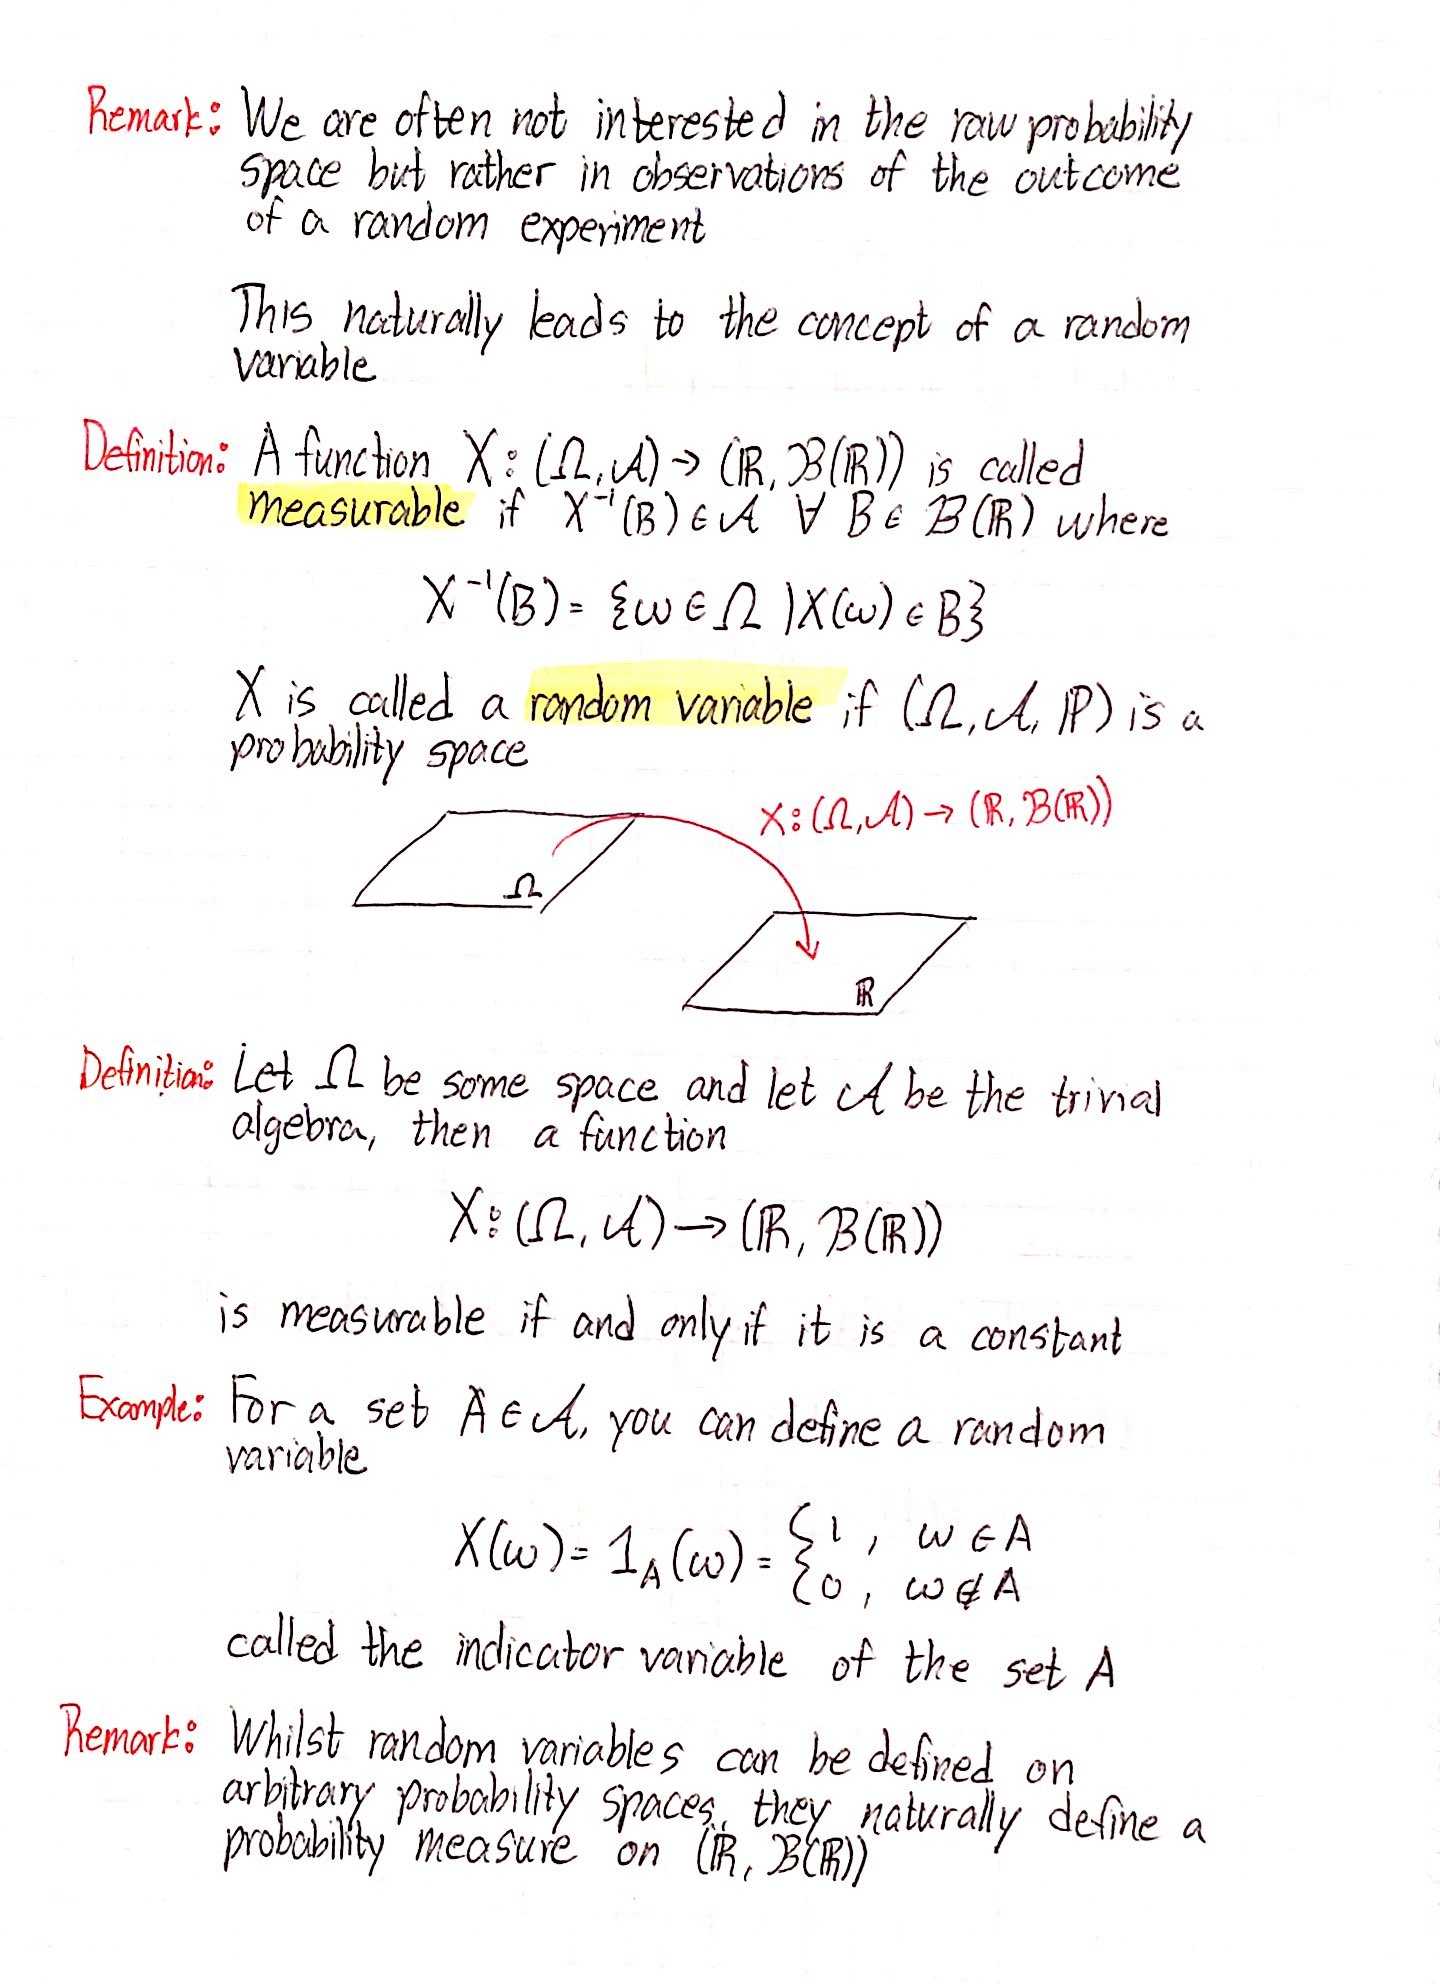 Remark: We are often not interested in the raw probability
space but rather in observations of the outcome
of a random experiment
This naturally leads to the concept of a random
variable
Definition: A function X: (Ω, 𝒜) → (ℝ, ℬ(ℝ)) is called
measurable if X⁻¹(B) ∈ 𝒜 ∀ B ∈ ℬ(ℝ) where
X⁻¹(B) = {ω ∈ Ω | X(ω) ∈ B}
X is called a random variable if (Ω, 𝒜, ℙ) is a
probability space
X: (Ω, 𝒜) → (ℝ, ℬ(ℝ))
Ω
ℝ
Definition: Let Ω be some space and let 𝒜 be the trivial
algebra, then a function
X: (Ω, 𝒜) → (ℝ, ℬ(ℝ))
is measurable if and only if it is a constant
Example: For a set A ∈ 𝒜, you can define a random
variable
X(ω) = 1_A(ω) = {1, ω ∈ A
{0, ω ∉ A
called the indicator variable of the set A
Remark: Whilst random variables can be defined on
arbitrary probability spaces, they naturally define a
probability measure on (ℝ, ℬ(ℝ))